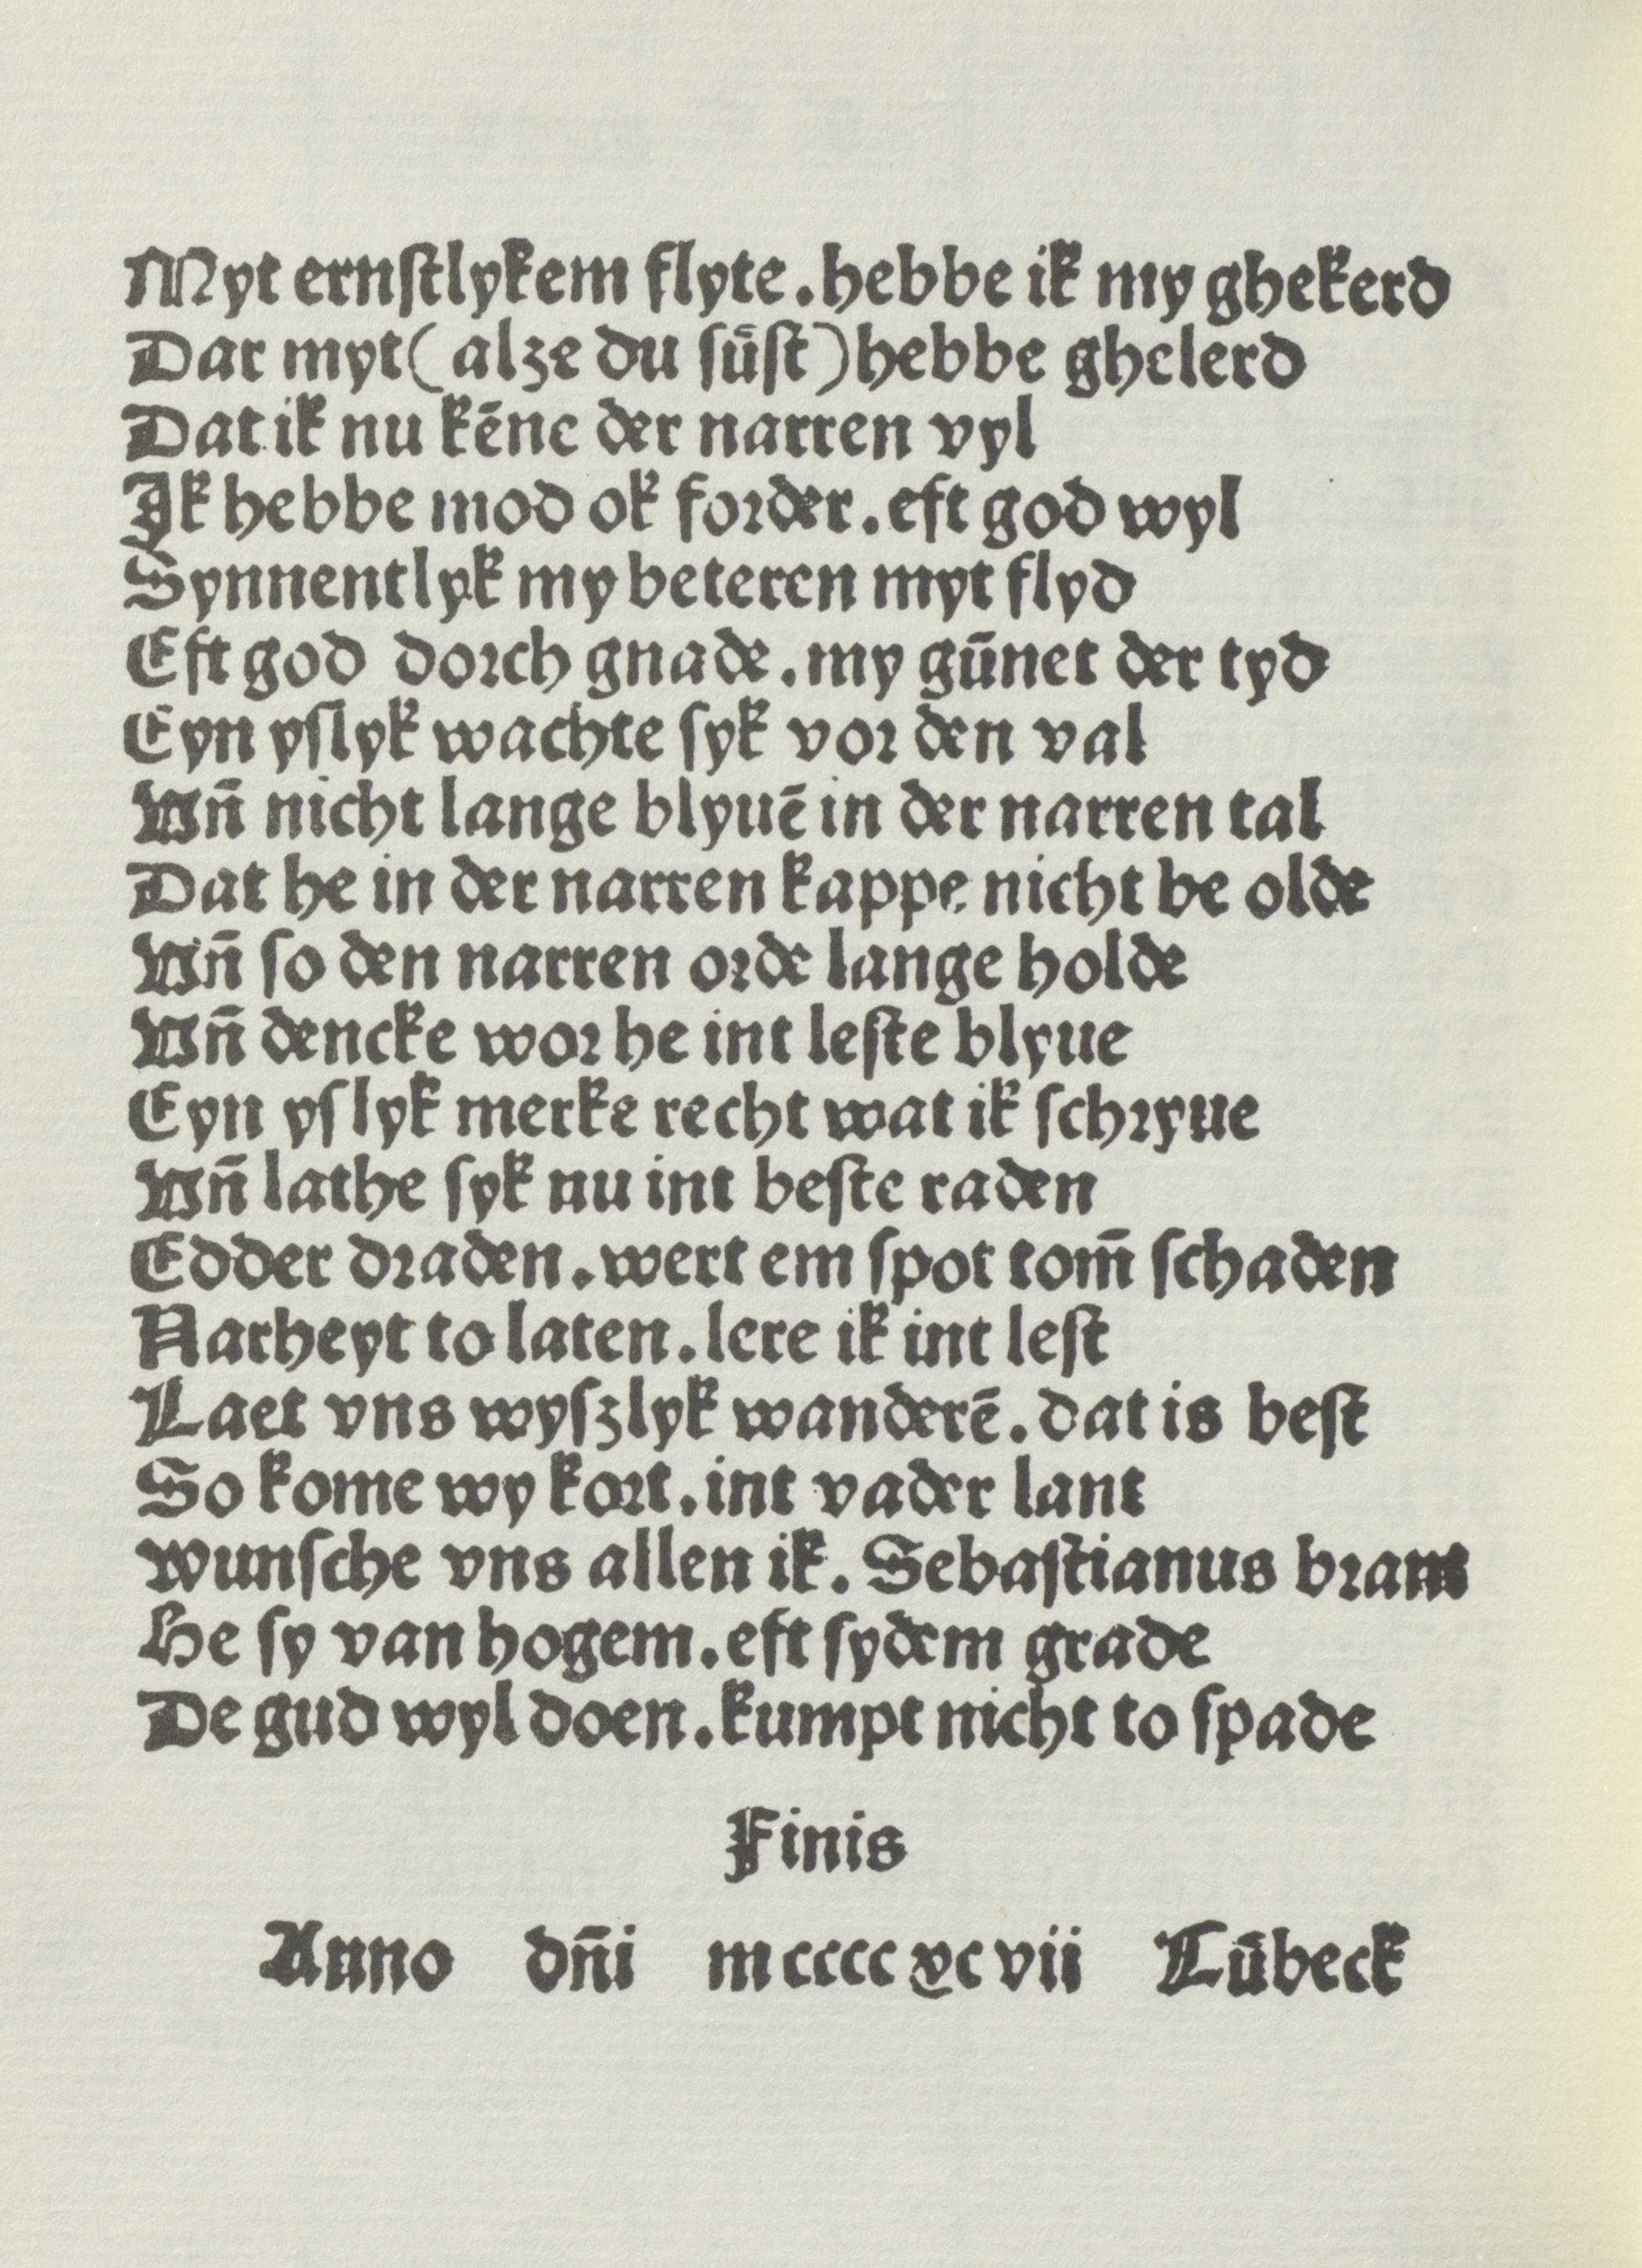 Myt ernſtlykem flyte. hebbe ik my ghekerd
Dar myt ( alze du ſuͤſt ) hebbe ghelerd
Dat ik nu kēne der narren vyl
Ik hebbe mod ok forder. eft god wyl
Synnentlyk my beteren myt flyd
Eft god dorch gnade. my gūnet der tyd
Eyn yſlyk wachte ſyk vor den val
Vn̄ nicht lange blyuē in der narren tal
Dat he in der narren kappe nicht be olde
Vn̄ ſo den narren orde lange holde
Vn̄ dencke wor he int leſte blyue
Eyn yſlyk merke recht wat ik ſchryue
Vn̄ lathe ſyk nu int beſte raden
Edder draden. wert em ſpot tom̄ ſchaden
Narheyt to laten. lere ik int leſt
Laet vns wyſzlyk wanderē. dat is beſt
So kome wy kort. int vader lant
wunſche vns allen ik. Sebaſtianus brant
He ſy van hogem. eft ſydem grade
De gud wyl doen. kumpt nicht to ſpade
Finis
Anno dn̄i mccccxcvii Luͤbeck